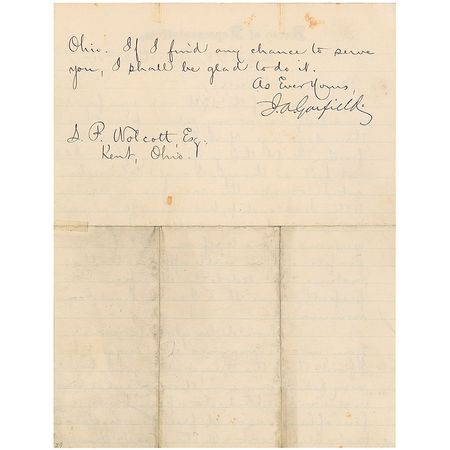 Ohio. If I find any chance to serve
you, I shall be glad to do it.
As Ever Yours,
J. A. Garfield
S. P. Wolcott, Esq.
Kent, Ohio.